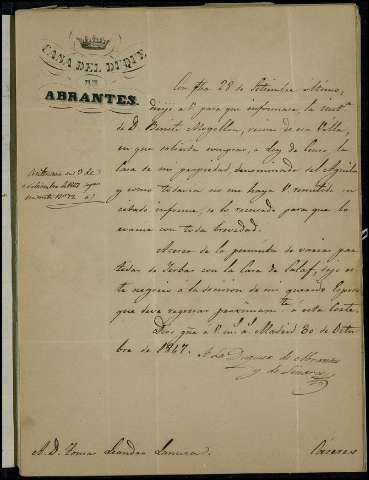 CASA DEL DUQUE
DE
ABRANTES.
Con fha 28 de Setiembre último,
dirijí a V. para que informara, la inst.ª
de D. Benito Mogollon, vecino de esa Villa,
en que solicita comprar, a Ley de Censo, la
Casa de mi propiedad denominada del Aguila
y como todavia no me haya V. remitido su
citado informe, se lo recuerdo para que lo
evacue con toda brevedad.
Acerca de la permuta de varias par
tidas de Yerbas con la Casa de dejo es
te negocio á la decision de mi querido Esposo
que debe regresar proximam.te á esta Corte.
Dios gue á V. m.s a.s Madrid 30 de Octu
bre de 1847.
La Duquesa de Abrantes
y de Linares
de
A D. Tomas Leandro
Cáceres